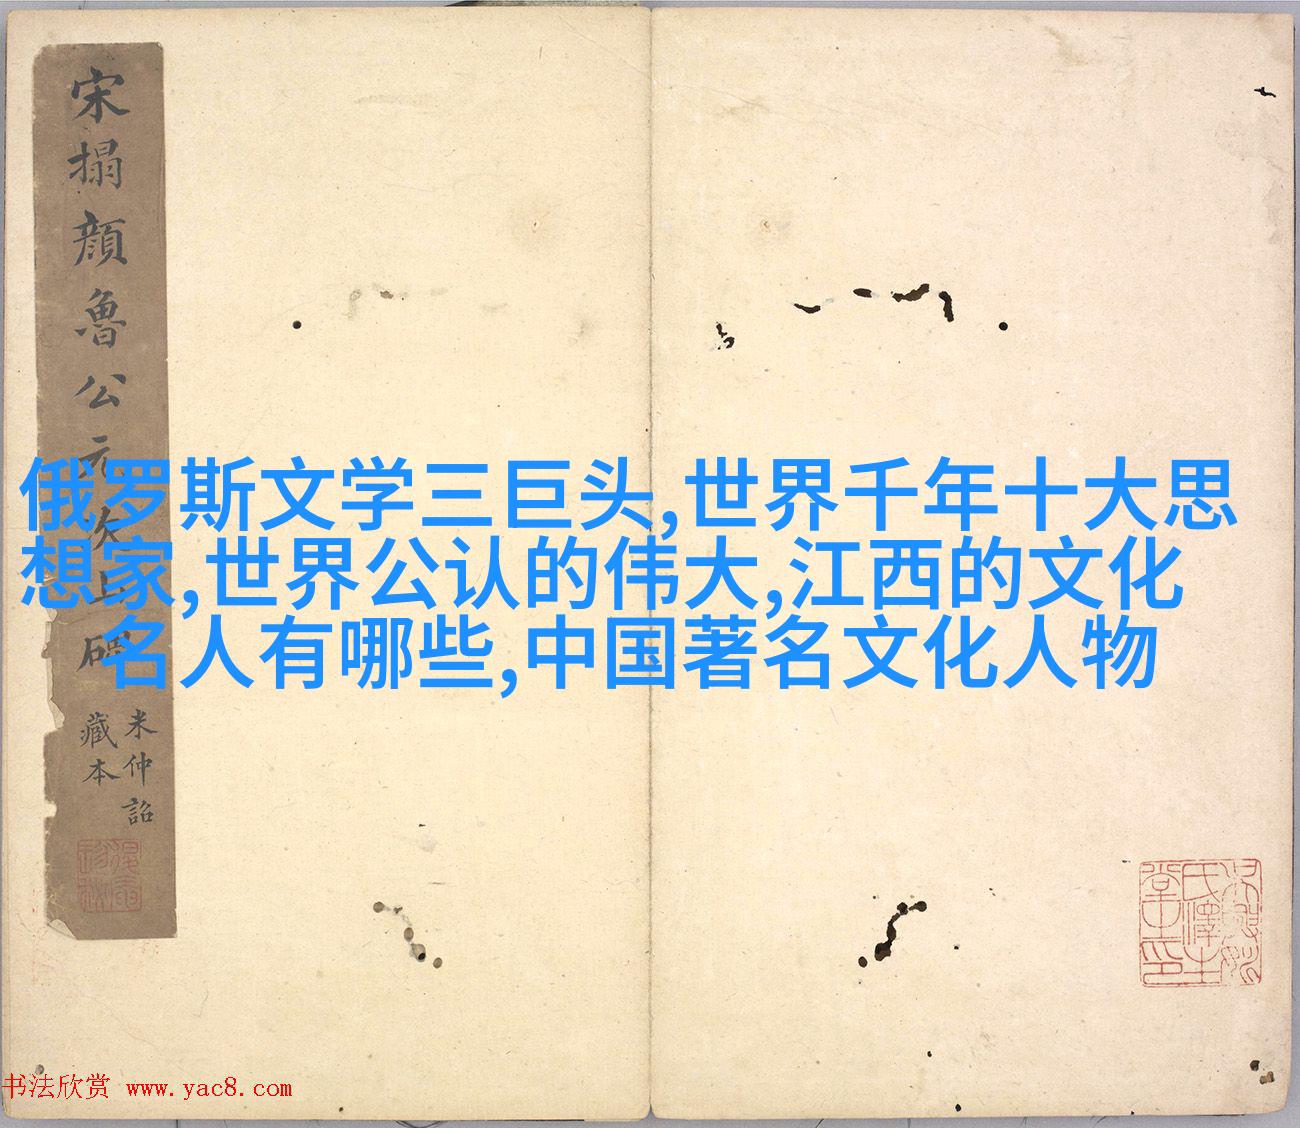 宋搨顔魯公元次山碑
米仲詔
藏本
俄罗斯文学三巨头,世界千年十大思
想家,世界公认的伟大,江西的文化
名人有哪些,中国著名文化人物
书法欣赏 www.yac8.com